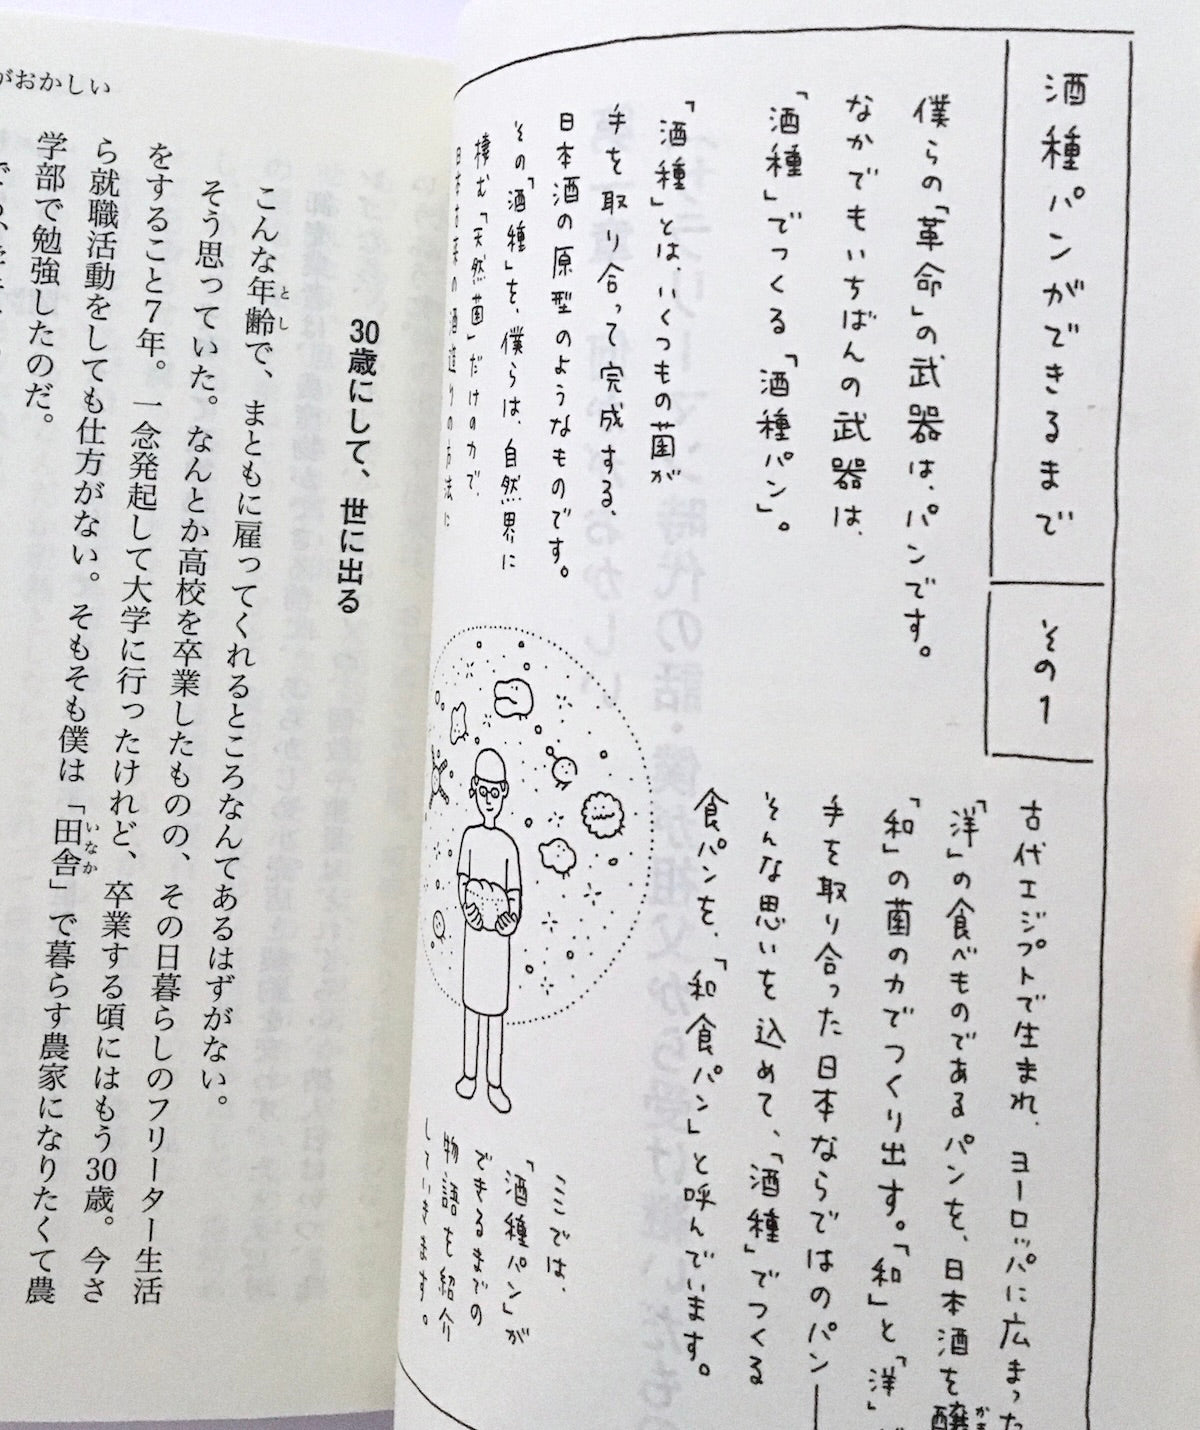 酒種パンができるまで
その1
僕らの「革命」の武器は、パンです。
なかでもいちばんの武器は、
「酒種」でつくる「酒種パン」。
「酒種」とは、いくつもの菌が
手を取り合って完成する、
日本酒の原型のようなものです。
その「酒種」を、僕らは、自然界に
棲む「天然菌」だけの力で、
日本古来の酒造りの方法に
古代エジプトで生まれ、ヨーロッパに広まった
「洋」の食べものであるパンを、日本酒を醸
「和」の菌の力でつくり出す。「和」と「洋」
手を取り合った日本ならではのパン―
そんな思いを込めて、「酒種」でつくる
食パンを、「和食パン」と呼んでいます。
ここでは、
「酒種パン」が
できるまでの
物語を紹介
していきます。
がおかしい
30歳にして、世に出る
こんな年齢で、まともに雇ってくれるところなんてあるはずがない。
そう思っていた。なんとか高校を卒業したものの、その日暮らしのフリーター生活
をすること7年。一念発起して大学に行ったけれど、卒業する頃にはもう30歳。今さ
ら就職活動をしても仕方がない。そもそも僕は「田舎」で暮らす農家になりたくて農
学部で勉強したのだ。